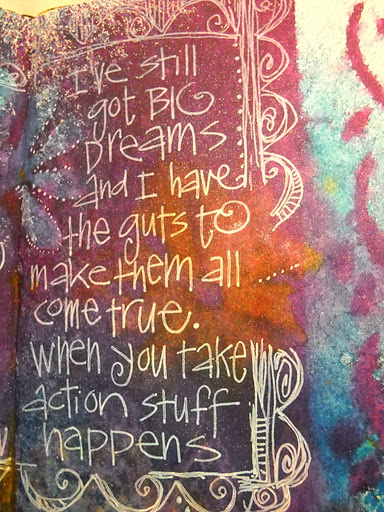 I've still
got BIG
Dreams
and I have
the guts to
make them all
come true.
When you take
action stuff
happens